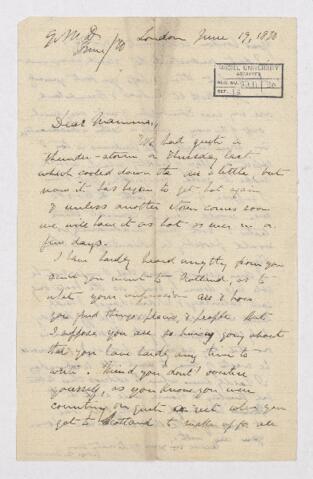 G. M. D.
June/80
London June 19, 1880
McGILL UNIVERSITY
ARCHIVES
ACC. NO.
REF.
Dear Mamma,
We had quite a
thunder-storm on Thursday last
which cooled down the air a little, but
now it has begun to get hot again
& unless another storm comes soon
we will have it as hot as ever in a
few days.
I have hardly heard anything from you
since you went to Scotland, as to
what your impressions are & how
you find things, places, & people. But
I suppose you are so busy going about
that you have hardly any time to
write. Mind you don't overtire
yourself, as you know you were
counting on quite a rest when you
got to Scotland to make up for all